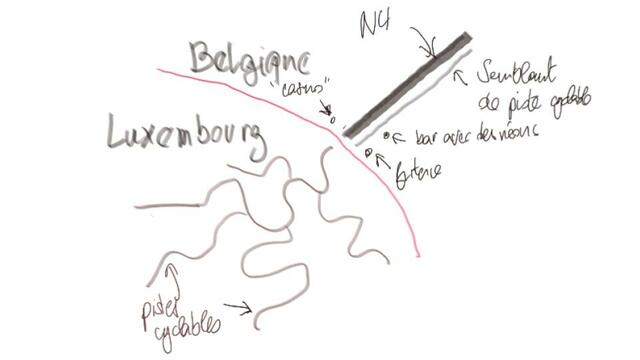 N4
Belgique
"casino"
Semblant
de piste cyclable
Luxembourg
bar avec des néons
friterie
pistes
cyclables